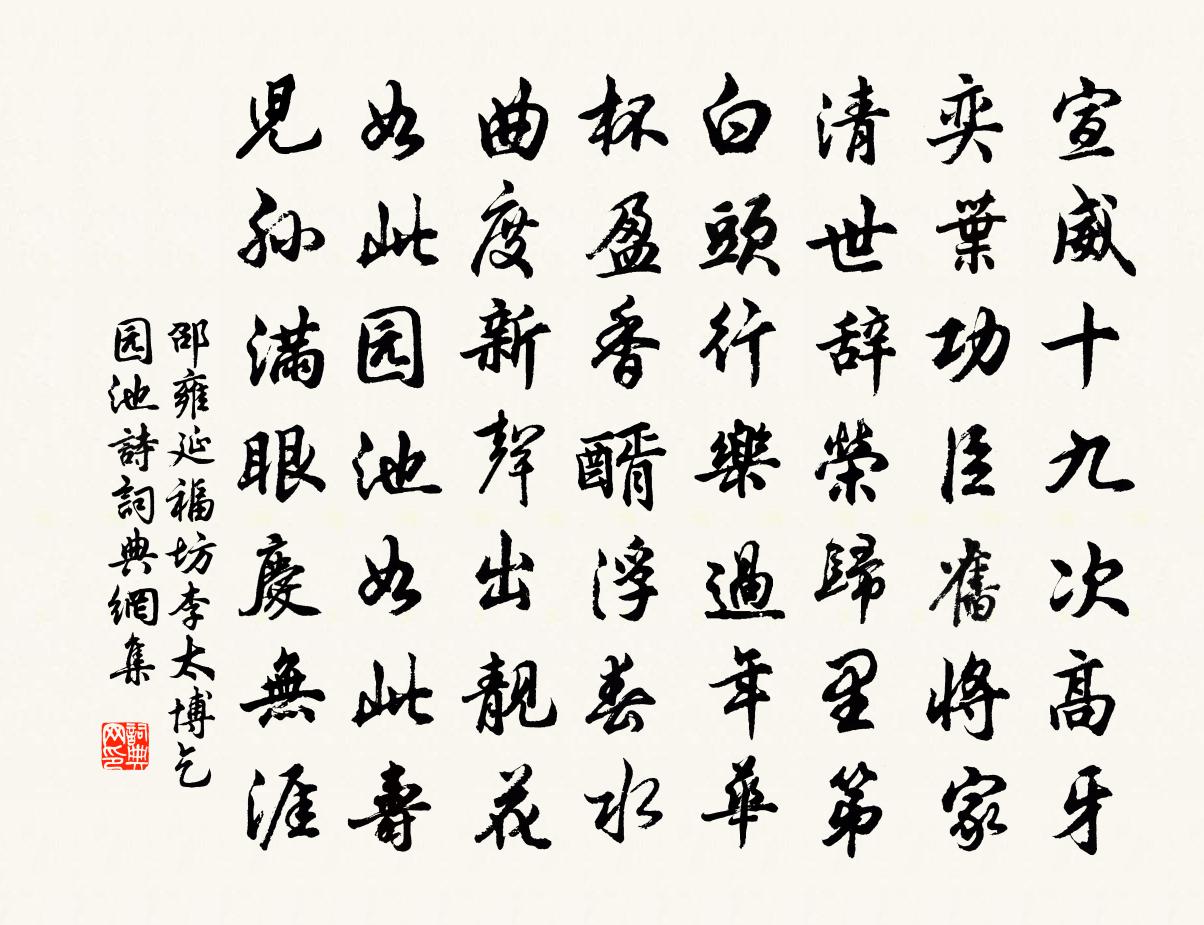 宣威十九次高牙
奕葉功臣舊將家
清世辞榮歸里第
白頭行樂過年華
杯盈香醑浮春水
曲度新聲出靚花
如此园池如此壽
児孫满眼慶無涯
邵雍延福坊李太博乞
园池詩詞典網集
詞典网印